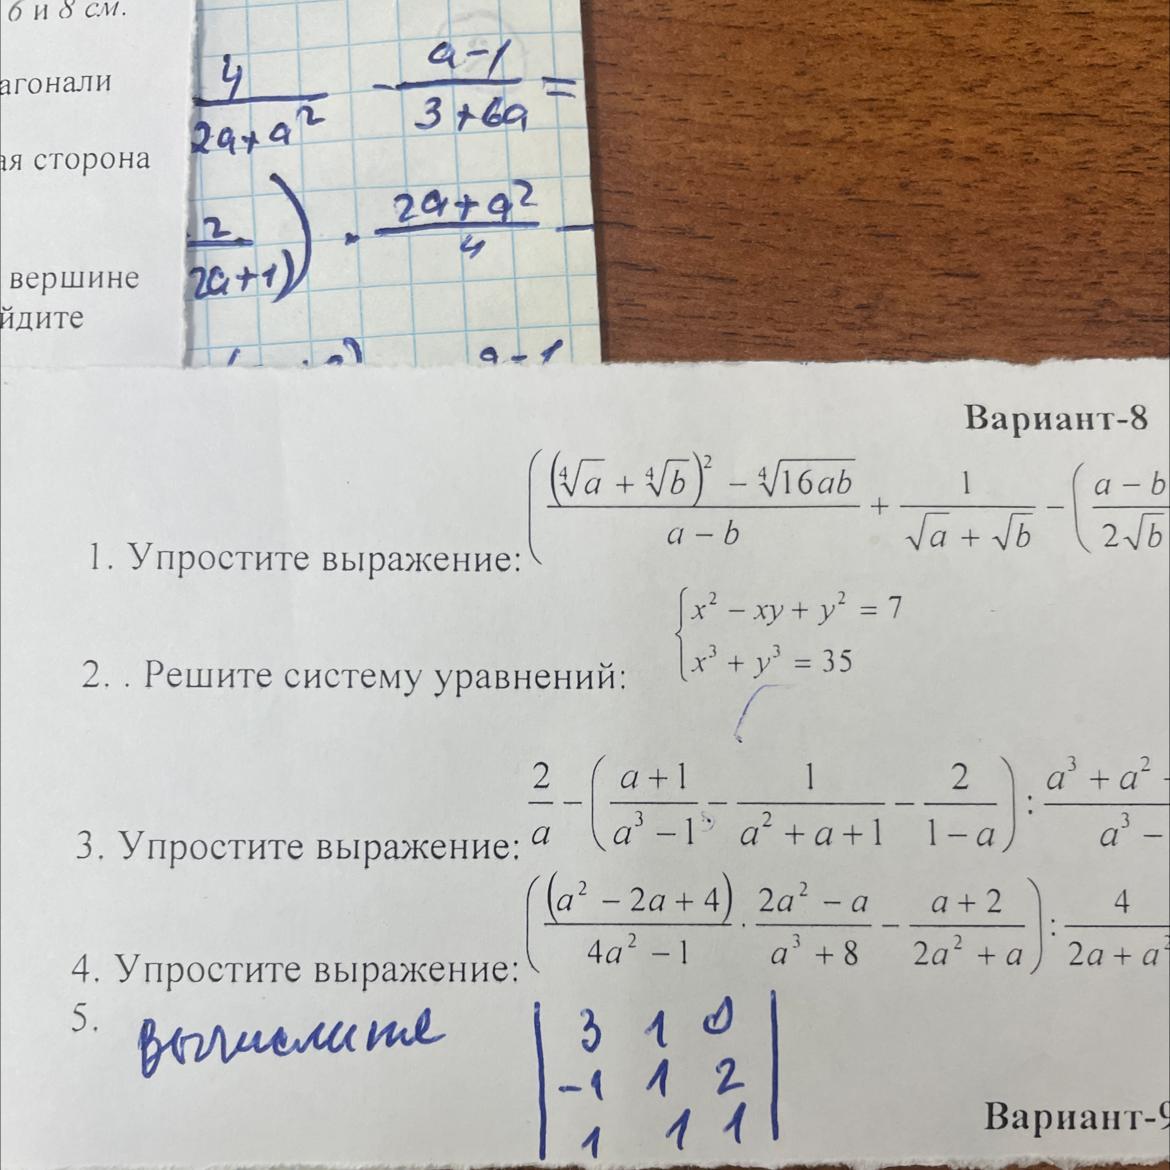 6 и 8 см.
агонали
ая сторона
вершине
йдите
4/(2a+a²) - (a-1)/(3+6a) =
2/(2a+1)) · (2a+a²)/4 -
a-1
Вариант-8
1. Упростите выражение: (((∜a + ∜b)² - ∜16ab)/(a - b) + 1/(√a + √b) - ((a - b)/(2√b)
2. . Решите систему уравнений: {x² - xy + y² = 7
x³ + y³ = 35
3. Упростите выражение: 2/a - ((a+1)/(a³-1) - 1/(a²+a+1) - 2/(1-a)) : (a³+a²-)/(a³-
4. Упростите выражение: ((a²-2a+4)/(4a²-1) · (2a²-a)/(a³+8) - (a+2)/(2a²+a)) : 4/(2a+a²
5. вычислите | 3 1 0 |
| -1 1 2 |
| 1 1 1 |
Вариант-9